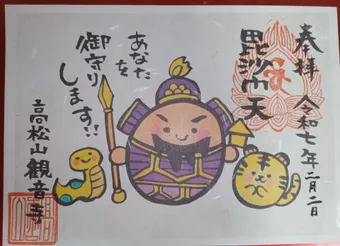 奉拝 令和七年二月二日
毘沙門天
あなたを
御守り
します!!
高松山観音寺